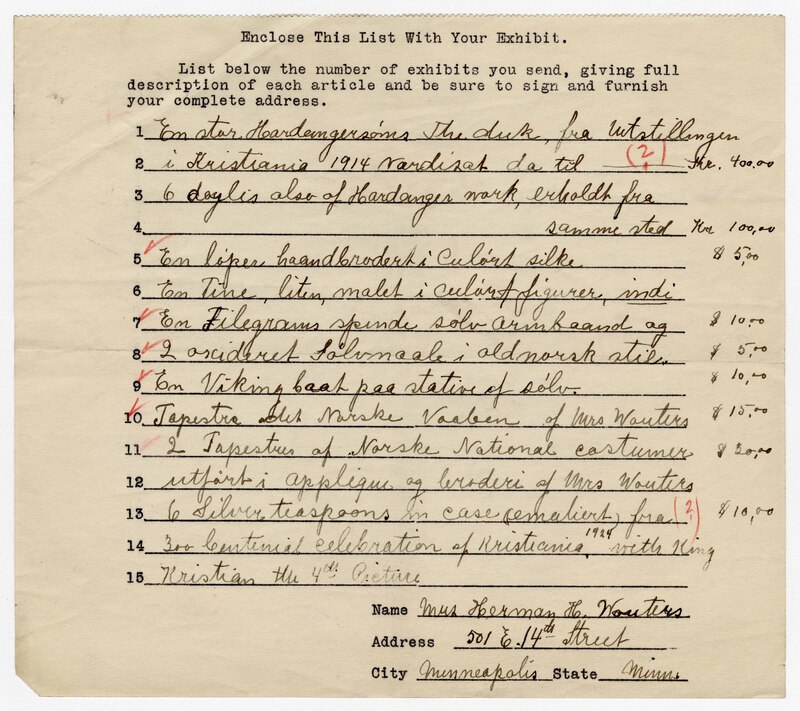 Enclose This List With Your Exhibit.
List below the number of exhibits you send, giving full
description of each article and be sure to sign and furnish
your complete address.
1 En stor Hardangersöms The duk, fra Utstillingen
2 i Kristiania 1914 Værdisat da til (2) Kr. 400.00
3 6 doylis also of Hardanger work, erholdt fra
4 samme sted Kr 100,00
5 En löper haandbrodert i Culört silke $ 5,00
6 En Tine, liten, malet i culört figurer, indi
7 En Filegrams spende sölv armbaand og $ 10,00
8 2 oxideret Sölvnaale i oldnorsk stil. $ 5,00
9 En Viking baat paa stative of sölv. $ 10,00
10 Tapestre det Norske Vaaben of Mrs Wouters $ 15,00
11 2 Tapestres of Norske National costumer $ 20,00
12 utfört i applique og broderi of Mrs Wouters
13 6 Silver teaspoons in case (emaliert) fra (2) $ 10,00
14 300 Centenial celebration of Kristiania, 1924 with King
15 Kristian the 4th Picture
Name Mrs Herman H. Wouters
Address 501 E. 14th Street
City Minneapolis State Minn.